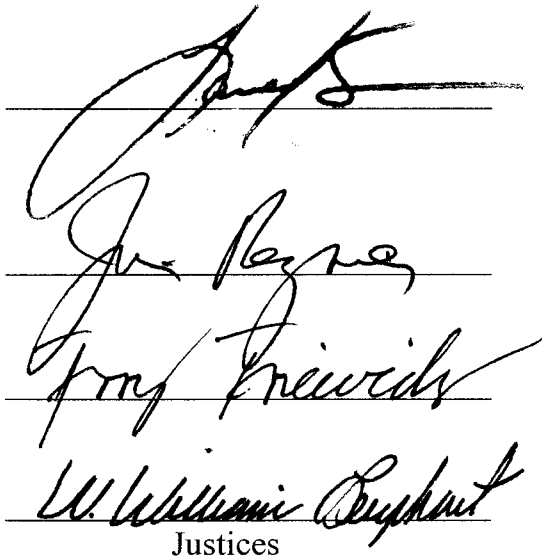 Jim Regnier
Terry Trieweiler
W. William Leaphart
Justices